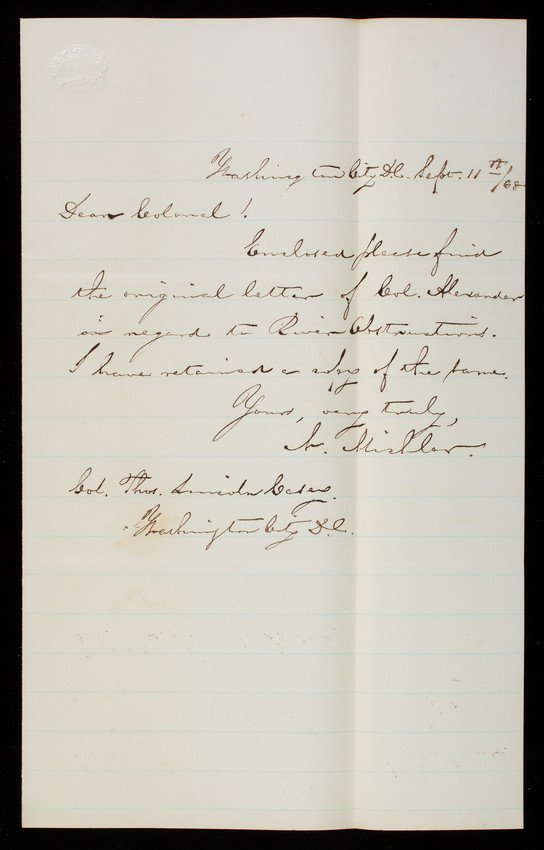 Washington City D.C. Sept. 11th/68
Dear Colonel!
Enclosed please find
the original letter of Col. Alexander
in regard to River Obstructions.
I have retained a copy of the same.
Yours, very truly,
N. Michler.
Col. Thos. Lincoln Casey.
Washington City D.C.